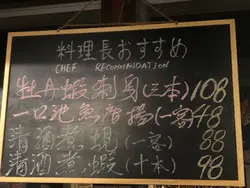 料理長おすすめ
CHEF RECOMMENDATION
牡丹蝦刺身(三本)108
一口池魚唐揚(一客)48
清酒煮蜆(一客) 88
清酒煮蝦(十本) 98